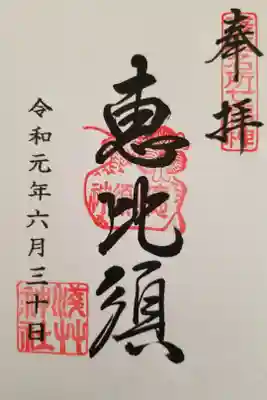 奉拝
恵比須
令和元年六月三十日
浅草神社